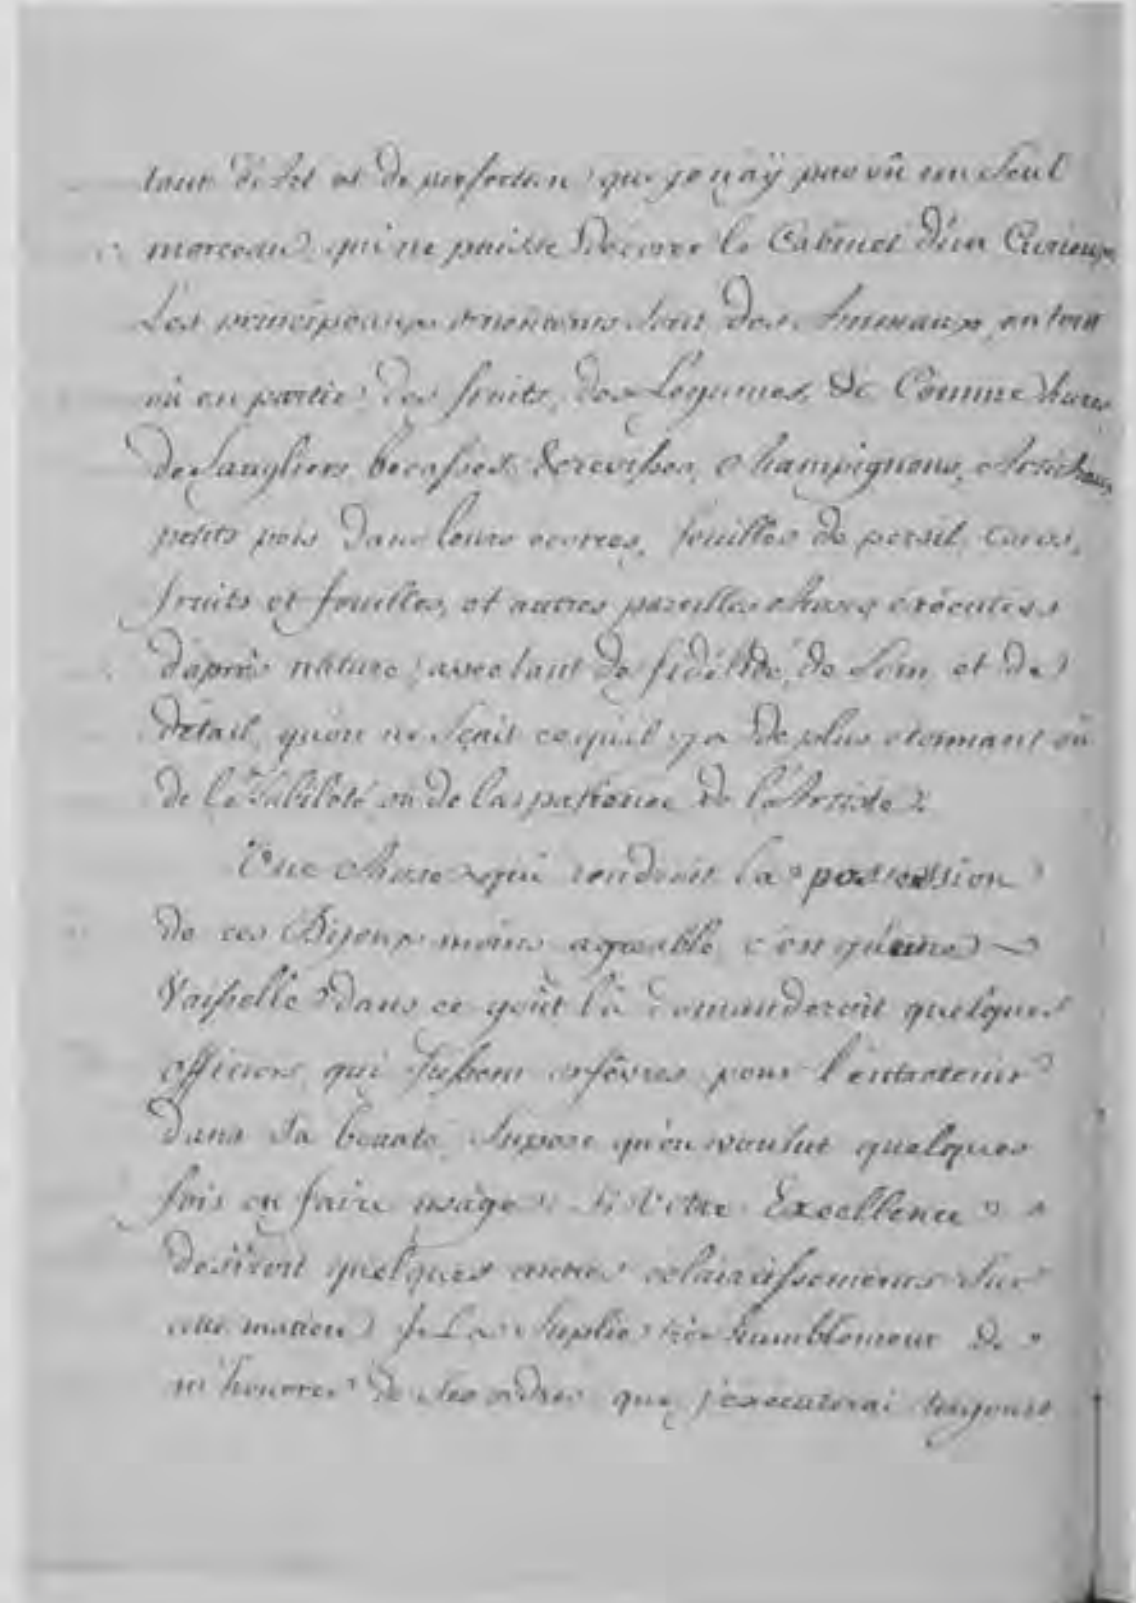 tant d'art et de perfection que je n'aÿ pas vû un Seul
morceau qui ne puisse décorer le Cabinet d'un Curieux
Les principaux ornemens sont des Animaux, en tout
où en partie, des fruits, des Legumes, &c Comme hures
de Sangliers, becasses, Ecrevisses, Champignons, Artichaux,
petits pois dans leurs cosses, feuilles de persil,
fruits et feuilles, et autres pareilles choses executées
d'aprés nature, avec tant de fidélité, de Soin, et de
détail, qu'on ne Sçait ce qu'il y a de plus étonnant où
de l'habileté où de la patience de l'Artiste.
Une Chose qui rendroit la possession
de ces Bijoux moins agreable, c'est qu'une
Vaisselle dans ce goût là demanderoit quelques
officiers qui fussent orfévres pour l'entretenir
dans Sa beauté, Suposé qu'on voulut quelques
fois en faire usage. Si Votre Excellence
desiroit quelques autres eclaircissemens Sur
cette matiere Je La Suplie trés humblement de
m'honorer de Ses ordres que j'executerai toujours